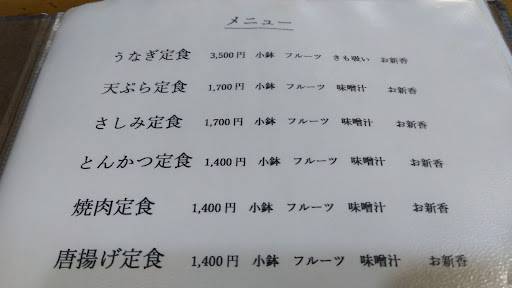 メニュー
うなぎ定食 3,500円 小鉢 フルーツ きも吸い お新香
天ぷら定食 1,700円 小鉢 フルーツ 味噌汁 お新香
さしみ定食 1,700円 小鉢 フルーツ 味噌汁 お新香
とんかつ定食 1,400円 小鉢 フルーツ 味噌汁 お新香
焼肉定食 1,400円 小鉢 フルーツ 味噌汁 お新香
唐揚げ定食 1,400円 小鉢 フルーツ 味噌汁 お新香